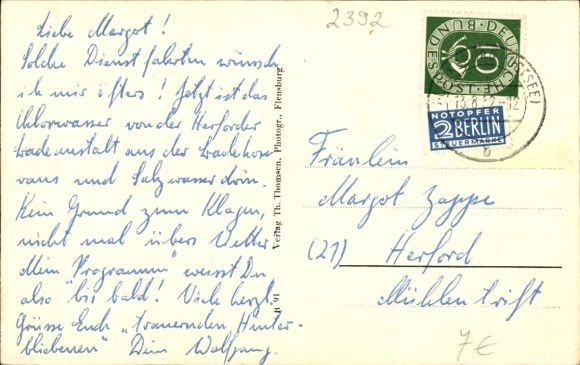 Liebe Margot!
Solche Dienstfahrten wünsch
ich mir öfters! Jetzt ist das
Chlorwasser von der Herforder
Badeanstalt aus der Badehose
raus und Salzwasser drin.
Kein Grund zum Klagen,
nicht mal übers Wetter.
Mein "Programm" weisst Du
also "bis bald! Viele herzl.
Grüsse Euch "trauernden Hinter-
bliebenen" Dein Wolfgang.
B 91 Verlag Th. Thomsen, Photogr., Flensburg
2392
DEUTSCHE BUNDESPOST
10
(OSTSEE)
13.8.52-12
b
NOTOPFER
2 BERLIN
STEUERMARKE
Fräulein
Margot Zappe
(21) Herford
Mühlentrift
7€